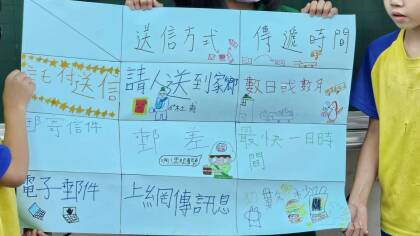 送信方式
傳遞時間
託付送信
請人送到家鄉
數日或數月
郵寄信件
郵差
最快一日時間
電子郵件
上網傳訊息